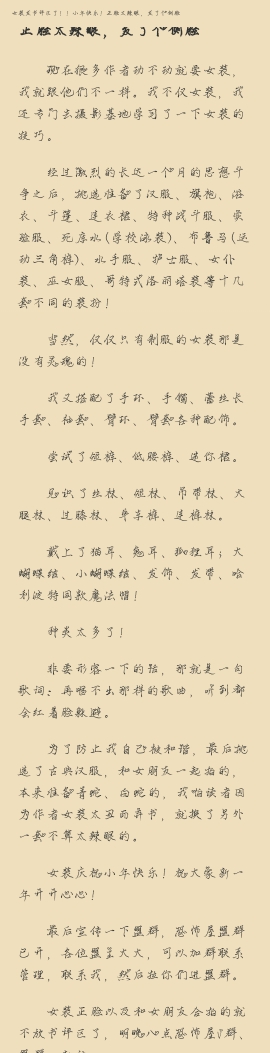 女装至书评区了！！小年快乐！正脸太辣眼，发了个侧脸
正脸太辣眼，发了个侧脸
现在很多作者动不动就要女装，
我就跟他们不一样。我不仅女装，我
还专门去摄影基地学习了一下女装的
技巧。
经过激烈的长达一个月的思想斗
争之后，挑选准备了汉服、旗袍、浴
衣、斗篷、连衣裙、特种战斗服、实
验服、死库水(学校泳装)、布鲁马(运
动三角裤)、水手服、护士服、女仆
装、巫女服、哥特式洛丽塔装等十几
套不同的装扮！
当然，仅仅只有制服的女装那是
没有灵魂的！
我又搭配了手环、手镯、蕾丝长
手套、袖套、臂环、臂套各种配饰。
尝试了短裤、低腰裤、迷你裙。
见识了丝袜、短袜、吊带袜、大
腿袜、过膝袜、安全裤、连裤袜。
戴上了猫耳、兔耳、狐狸耳；大
蝴蝶结、小蝴蝶结、发饰、发带、哈
利波特同款魔法帽！
种类太多了！
非要形容一下的话，那就是一句
歌词：再唱不出那样的歌曲，听到都
会红着脸躲避。
为了防止我自己被和谐，最后挑
选了古典汉服，和女朋友一起拍的，
本来准备青蛇、白蛇的，我怕读者因
为作者女装太丑而弃书，就换了另外
一套不算太辣眼的。
女装庆祝小年快乐！祝大家新一
年开开心心！
最后宣传一下盟群，恐怖屋盟群
已开，各位盟主大大，可以加群联系
管理，联系我，然后拉你们进盟群。
女装正脸以及和女朋友合拍的就
不放书评区了，明晚八点恐怖屋V群、